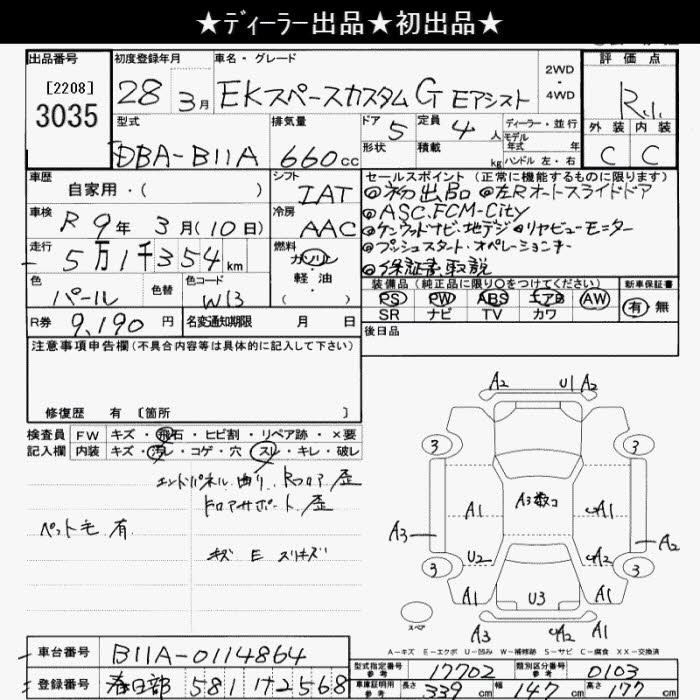 ★ディーラー出品★初出品★
出品番号 初度登録年月 車名・グレード 2WD・4WD 評価点
[2208]
3035
28年 3月 EKスペースカスタム G Eアシスト R.1.
型式 排気量 ドア 定員 ディーラー・並行 外装 内装
DBA-B11A 660cc 5 4人 モデル年式 年 C C
形状 積載 kg ハンドル 左・右
車歴 自家用・( ) シフト IAT セールスポイント (正常に機能するものに限ります)
◎初出品 ◎左Rオートスライドドア
車検 R 9年 3月 (10日) 冷房 AAC ◎ASC.FCM-City
◎ケンウッドナビ・地デジ ◎リヤビューモーター
走行 5万1千354km 燃料 ガソリン・軽油・( ) ◎プッシュスタート・オペレーションキー
◎保証書.取説
色 パール 色替 色コード W13 装備品 (純正品に限り○をつけてください) 新車保証書
PS PW ABS エアB AW 有 無
SR ナビ TV カワ
R券 9,190円 名変通知期限 月 日 後日品
注意事項申告欄 (不具合内容等は具体的に記入して下さい)
修復歴 有 〔箇所 〕
検査員 FW キズ・飛石・ヒビ割・リペア跡・×要
記入欄 内装 キズ・汚レ・コゲ・穴・スレ・キレ・破レ
エンドパネル 曲り. Rフロア 歪
Fロアサポート 歪
ペット毛 有
キズ E スリキズ
A2 U1 A2
3 3
A1 A3数コ A1
A3 A2
U2 A2
3 3
A1 U3 A1
A3 A2 A1
スペア
A-キズ E-エクボ U-凹み W-補修跡 S-サビ C-腐食 XX-交換済
車台番号 B11A-0114864 型式指定番号 参考 17702 類別区分番号 参考 0103
登録番号 春日部 581 2568 車庫証明用 参考 長さ 339cm 幅 147cm 高さ 177cm